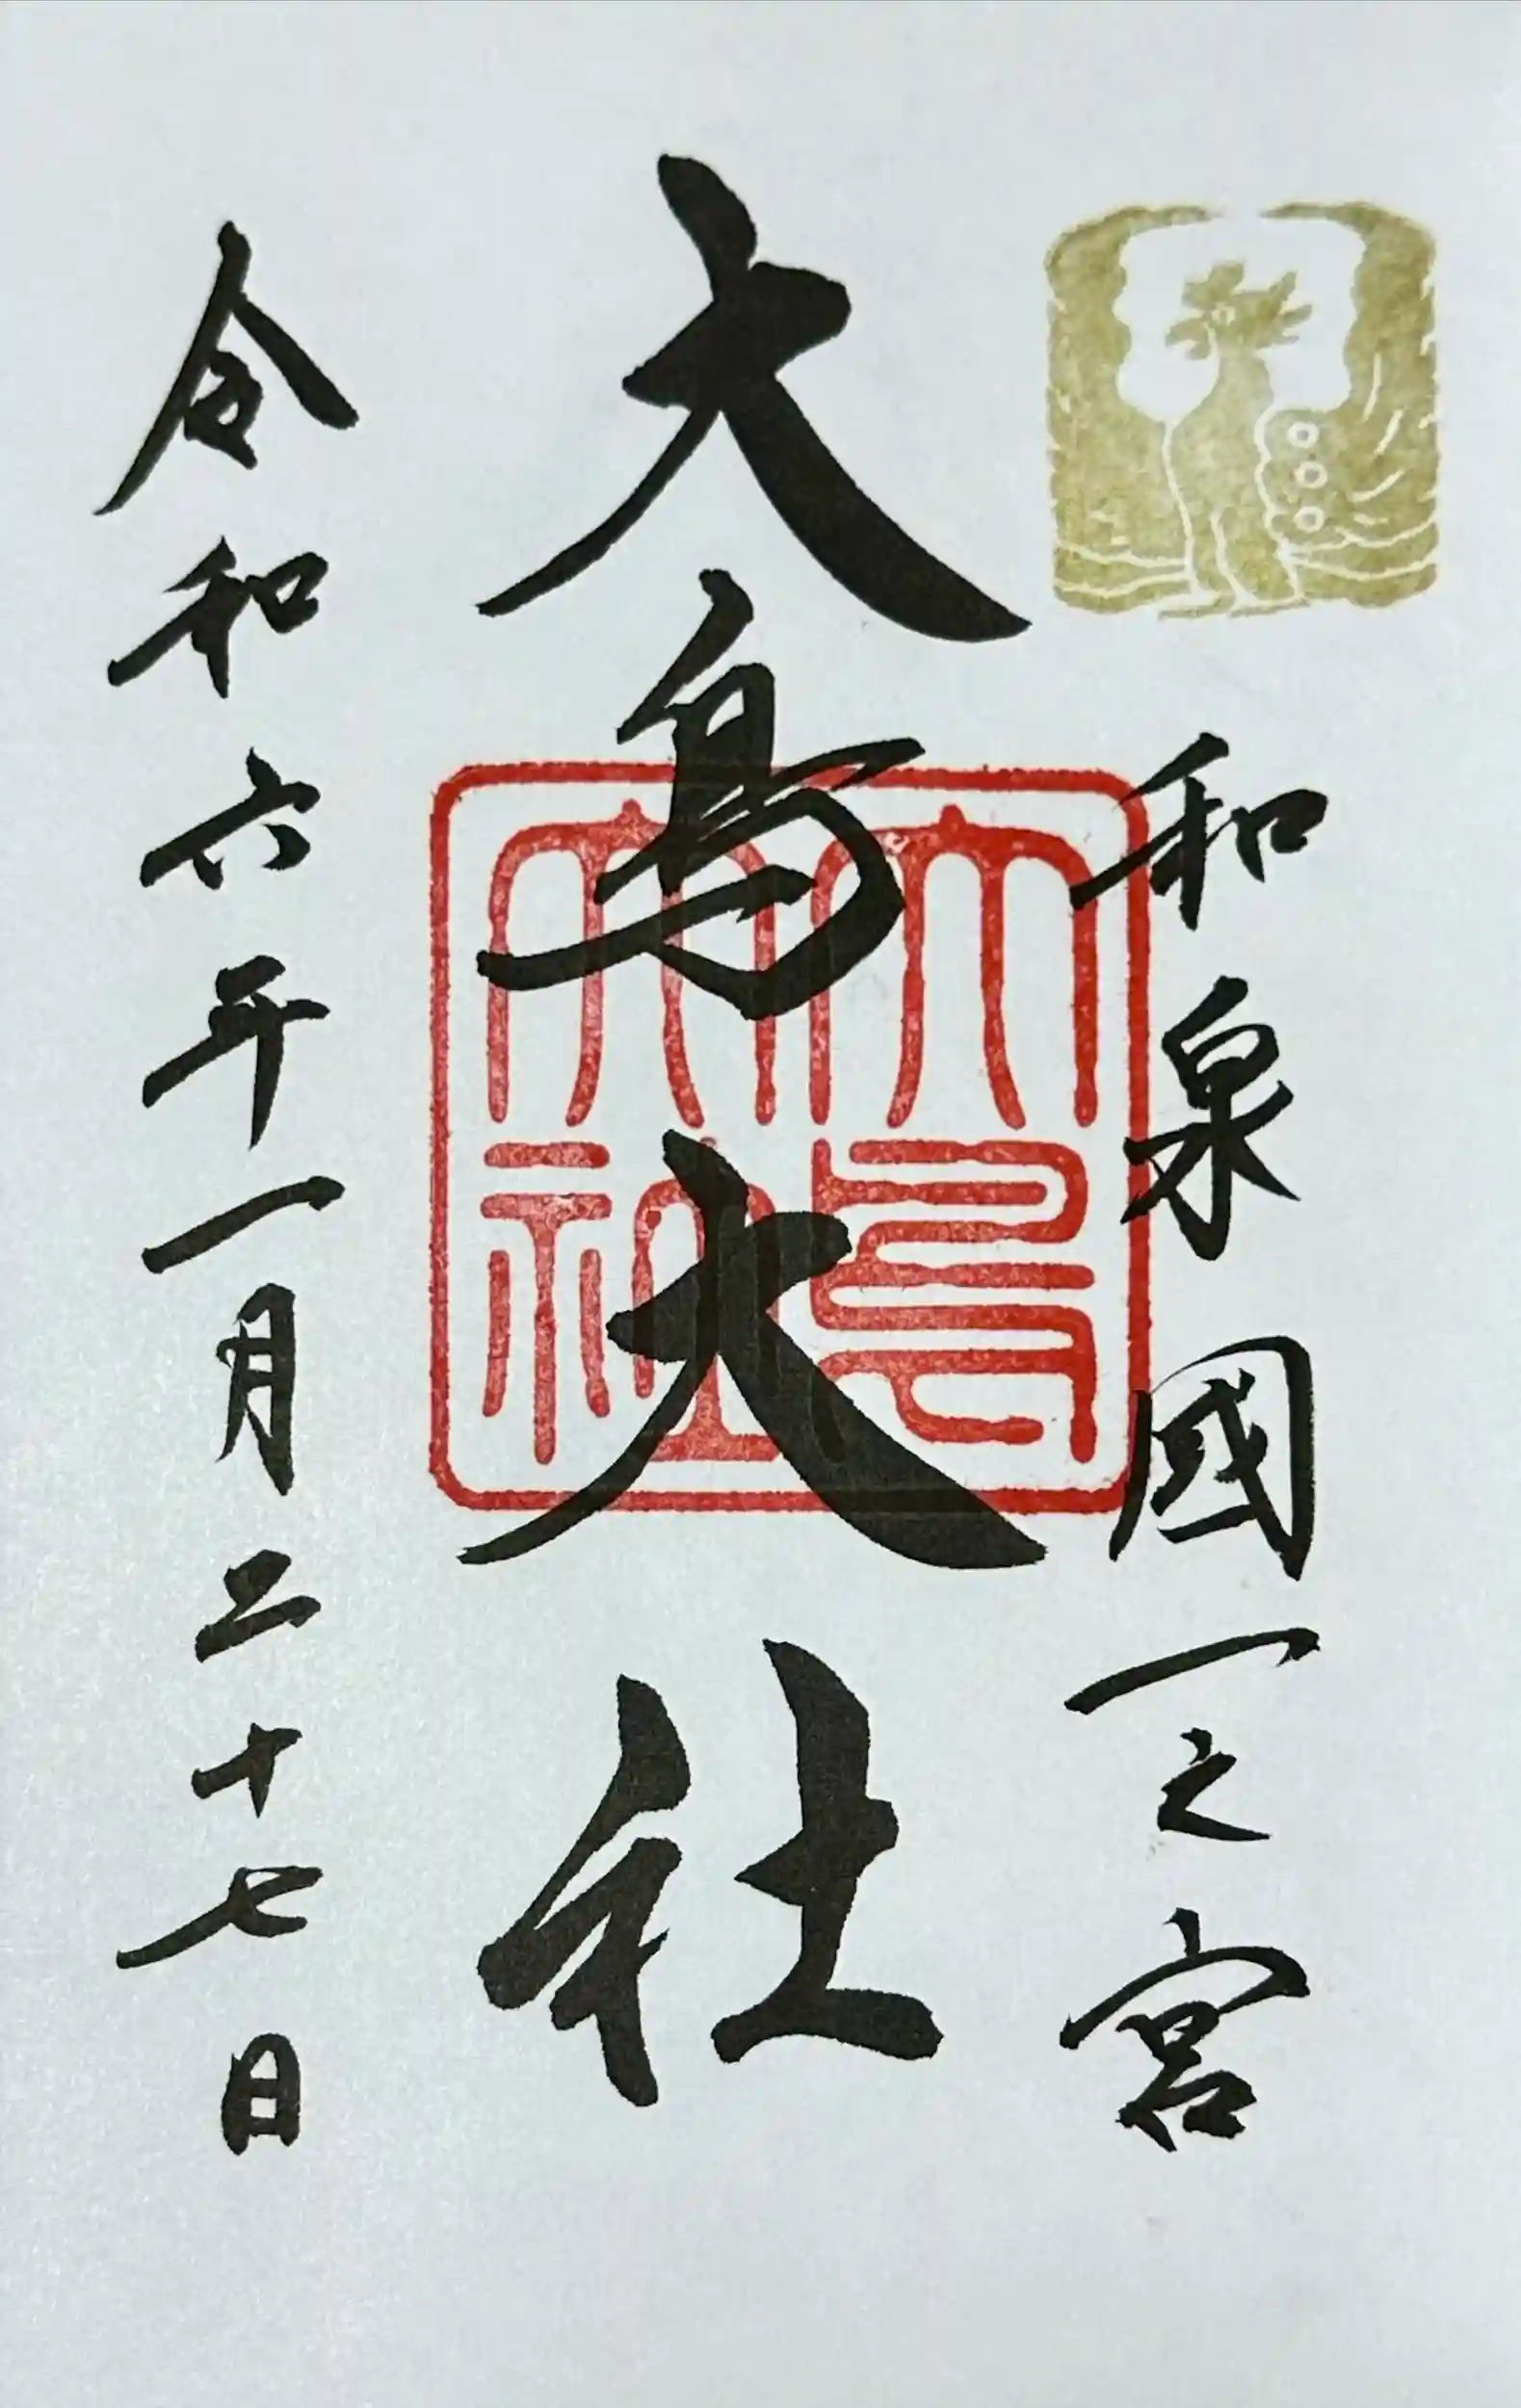 和泉國一之宮
大鳥大社
大鳥大社
令和六年一月二十七日